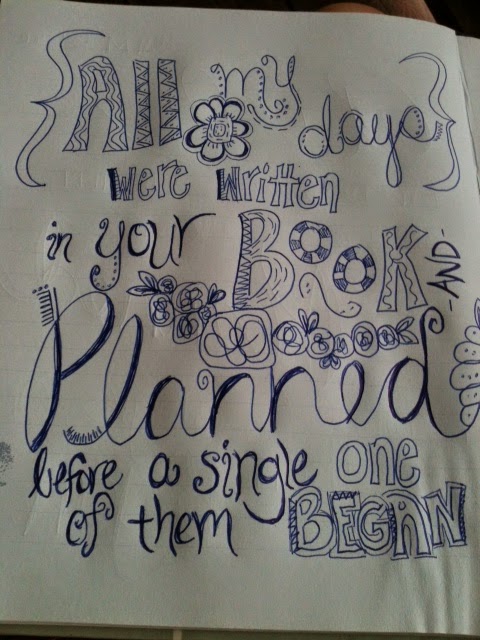 {All my days}
were written
in your Book -AND-
Planned
before a single one
of them BEGAN